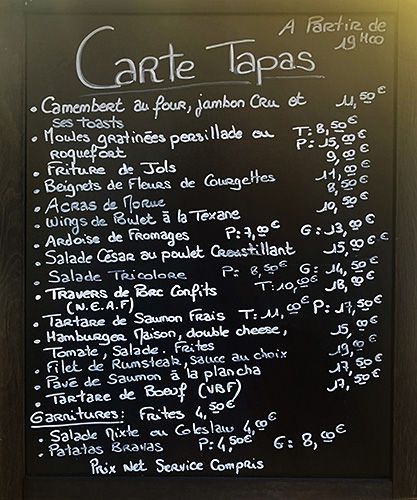 A Partir de
19H00
Carte Tapas
• Camembert au four, jambon Cru et ses toasts 11,50€
• Moules gratinées persillade ou roquefort T: 8,50€ P: 15,00€
• Friture de Jols 9,00€
• Beignets de Fleurs de Courgettes 11,00€
• Acras de Morue 8,50€
• Wings de Poulet à la Texane 10,50€
• Ardoise de Fromages P: 7,00€ G: 13,00€
• Salade César au poulet Croustillant 15,00€
• Salade Tricolore P: 8,50€ G: 14,50€
• Travers de Porc Confits (N.E.A.F) T: 10,00€ 18,00€
• Tartare de Saumon Frais T: 11,00€ P: 17,50€
• Hamburger Maison, double cheese, Tomate, Salade. Frites 15,00€
• Filet de Rumsteak, sauce au choix 19,00€
• Pavé de Saumon à la plancha 17,50€
• Tartare de Boeuf (VBF) 17,50€
Garnitures: Frites 4,50€
• Salade Mixte ou Coleslaw 4,00€
• Patatas Bravas P: 4,50€ G: 8,00€
Prix Net Service Compris